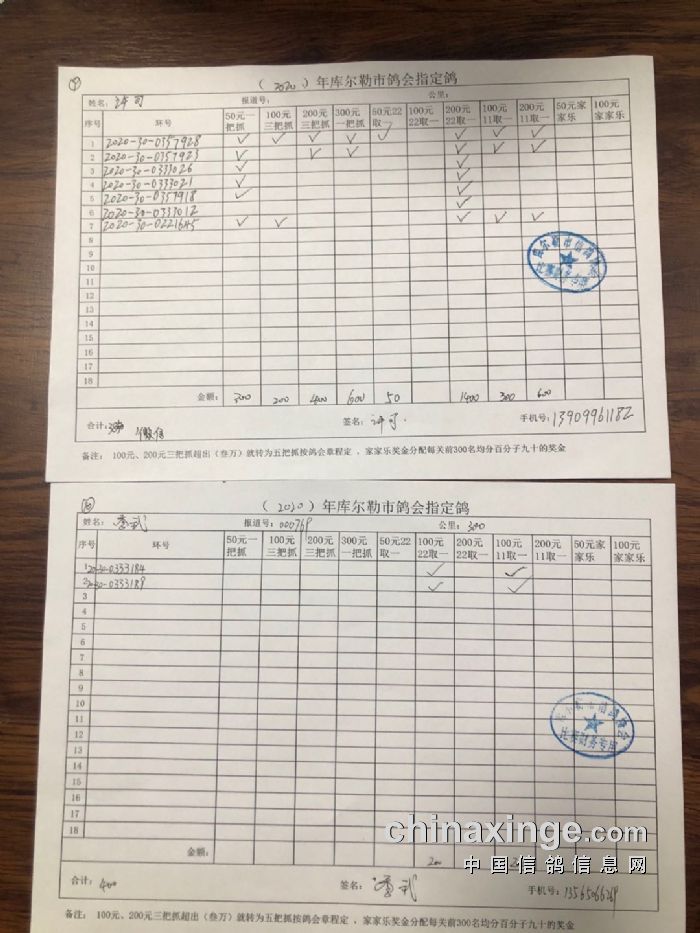 （2020）年库尔勒市鸽会指定鸽
姓名：许可 报道号： 公里：
序号 环号 50元一把抓 100元三把抓 200元三把抓 300元一把抓 50元22取一 100元22取一 200元22取一 100元11取一 200元11取一 50元家家乐 100元家家乐
1 2020-30-0357928 ✓ ✓ ✓ ✓ ✓ ✓ ✓ ✓
2 2020-30-0357923 ✓ ✓ ✓ ✓ ✓ ✓
3 2020-30-0333026 ✓ ✓
4 2020-30-0333021 ✓ ✓
5 2020-30-0357918 ✓ ✓
6 2020-30-0333012 ✓
7 2020-30-0221645 ✓ ✓ ✓ ✓ ✓
8
9
10
11
12
13
14
15
16
17
18
金额： 300 200 400 600 50 1400 300 600
合计： 微信 签名：许可 手机号：13909961182
备注： 100元、200元三把抓超出（叁万）就转为五把抓按鸽会章程定，家家乐奖金分配每关前300名均分百分子九十的奖金
库尔勒市信鸽协会
比赛财务专用
（2020）年库尔勒市鸽会指定鸽
姓名：李武 报道号：000769 公里：300
序号 环号 50元一把抓 100元三把抓 200元三把抓 300元一把抓 50元22取一 100元22取一 200元22取一 100元11取一 200元11取一 50元家家乐 100元家家乐
1 20-30-0333184 ✓ ✓
2 20-30-0333189 ✓ ✓
3
4
5
6
7
8
9
10
11
12
13
14
15
16
17
18
库尔勒市信鸽协会
比赛财务专用
金额： 200
合计：400 签名：李武 手机号：
备注： 100元、200元三把抓超出（叁万）就转为五把抓按鸽会章程定，家家乐奖金分配每关前300名均分百分子九十的奖金
chinaxinge.com
中国信鸽信息网